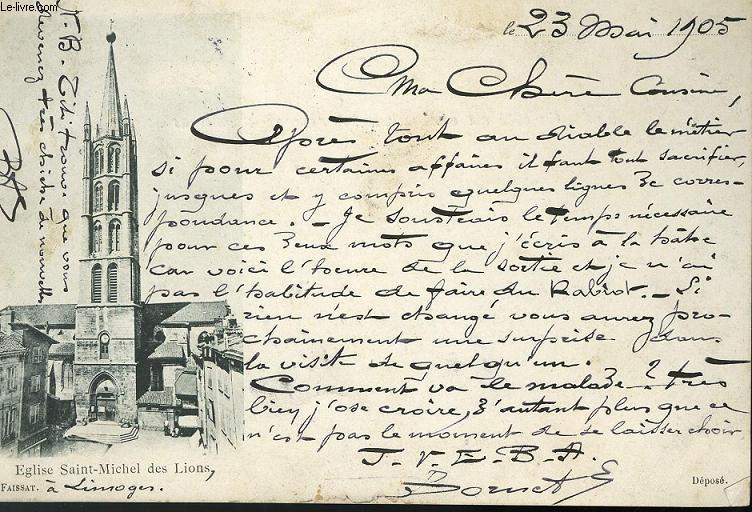 © Le-livre.com
le 23 Mai 1905
Ma Chère Cousine,
Après tout au diable le métier
si pour certaines affaires il faut tout sacrifier,
jusques et y compris quelques lignes de corres-
pondance. - Je soustrais le temps nécessaire
pour ces deux mots que j'écris à la hâte
car voici l'heure de la sortie et je n'ai
pas l'habitude de faire du Rabiot. - Si
rien n'est changé vous aurez pro-
chainement une surprise dans
la visite de quelqu'un.
Comment va le malade ? très
bien j'ose croire, d'autant plus que ce
n'est pas le moment de se laisser choir
J. V. E. B. A.
N. B. Titi trouve que vous
devenez très chiche de nouvelles
Eglise Saint-Michel des Lions,
à Limoges.
FAISSAT.
Déposé.